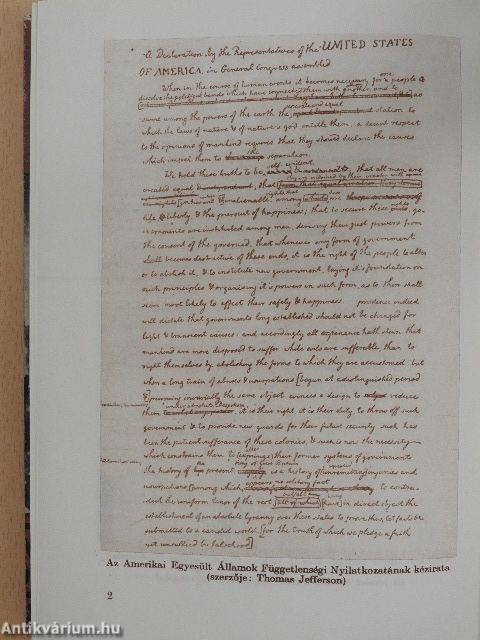 A Declaration by the Representatives of the UNITED STATES
OF AMERICA, in General Congress assembled.
When in the course of human events it becomes necessary for one people to
dissolve the political bands which have connected them with another, and to
sume among the powers of the earth the separate and equal station to
which the laws of nature & of nature's god entitle them, a decent respect
to the opinions of mankind requires that they should declare the causes
which impel them to the separation.
We hold these truths to be self-evident, that all men are
created equal that they are endowed by their creator with
rights that these are
life, & liberty, & the pursuit of happiness; that to secure these rights, go-
vernments are instituted among men, deriving their just powers from
the consent of the governed; that whenever any form of government
shall becomes destructive of these ends, it is the right of the people to alter
or to abolish it, & to institute new government, laying it's foundation on
such principles & organising it's powers in such form, as to them shall
seem most likely to effect their safety & happiness. prudence indeed
will dictate that governments long established should not be changed for
light & transient causes: and accordingly all experience hath shewn that
mankind are more disposed to suffer while evils are sufferable, than to
right themselves by abolishing the forms to which they are accustomed. but
when a long train of abuses & usurpations [begun at a distinguished period
& pursuing invariably the same object, evinces a design to reduce
them under absolute Despotism it is their right, it is their duty, to throw off such
government & to provide new guards for their future security. such has
been the patient sufferance of these colonies; & such is now the necessity
which constrains them to [expunge] their former systems of government.
the history of the present king of Great Britain is a history of [unremitting] injuries and
usurpations, [among which, appears no solitary fact to contra-
dict the uniform tenor of the rest, all of which [have] in direct object the
establishment of an absolute tyranny over these states. to prove this, let facts be
submitted to a candid world, [for the truth of which we pledge a faith
yet unsullied by falsehood]
Az Amerikai Egyesült Államok Függetlenségi Nyilatkozatának kézirata
(szerzője: Thomas Jefferson)
2
Antikvárium.hu